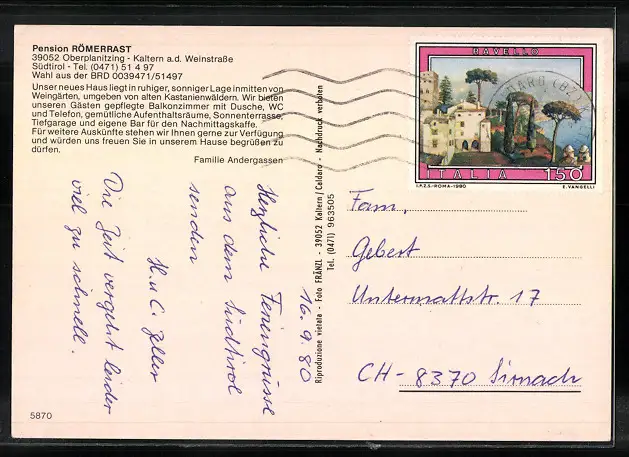 Pension RÖMERRAST
39052 Oberplanitzing - Kaltern a.d. Weinstraße
Südtirol - Tel. (0471) 51 4 97
Wahl aus der BRD 0039471/51497
Unser neues Haus liegt in ruhiger, sonniger Lage inmitten von
Weingärten, umgeben von alten Kastanienwäldern. Wir bieten
unseren Gästen gepflegte Balkonzimmer mit Dusche, WC
und Telefon, gemütliche Aufenthaltsräume, Sonnenterrasse,
Tiefgarage und eigene Bar für den Nachmittagskaffe.
Für weitere Auskünfte stehen wir Ihnen gerne zur Verfügung
und würden uns freuen Sie in unserem Hause begrüßen zu
dürfen.
Familie Andergassen
16.9.80
Herzliche Feriengrüsse
aus dem Südtirol
senden
H. u C. Zeller
Die Zeit vergeht leider
viel zu schnell.
5870
Riproduzione vietata - Foto FRÄNZL - 39052 Kaltern / Caldaro - Nachdruck verboten
Tel. (0471) 963505
RAVELLO
ITALIA 150
I.P.Z.S.-ROMA-1980 E. VANGELLI
Fam,
Gebert
Untermattstr. 17
CH-8370 Sirnach